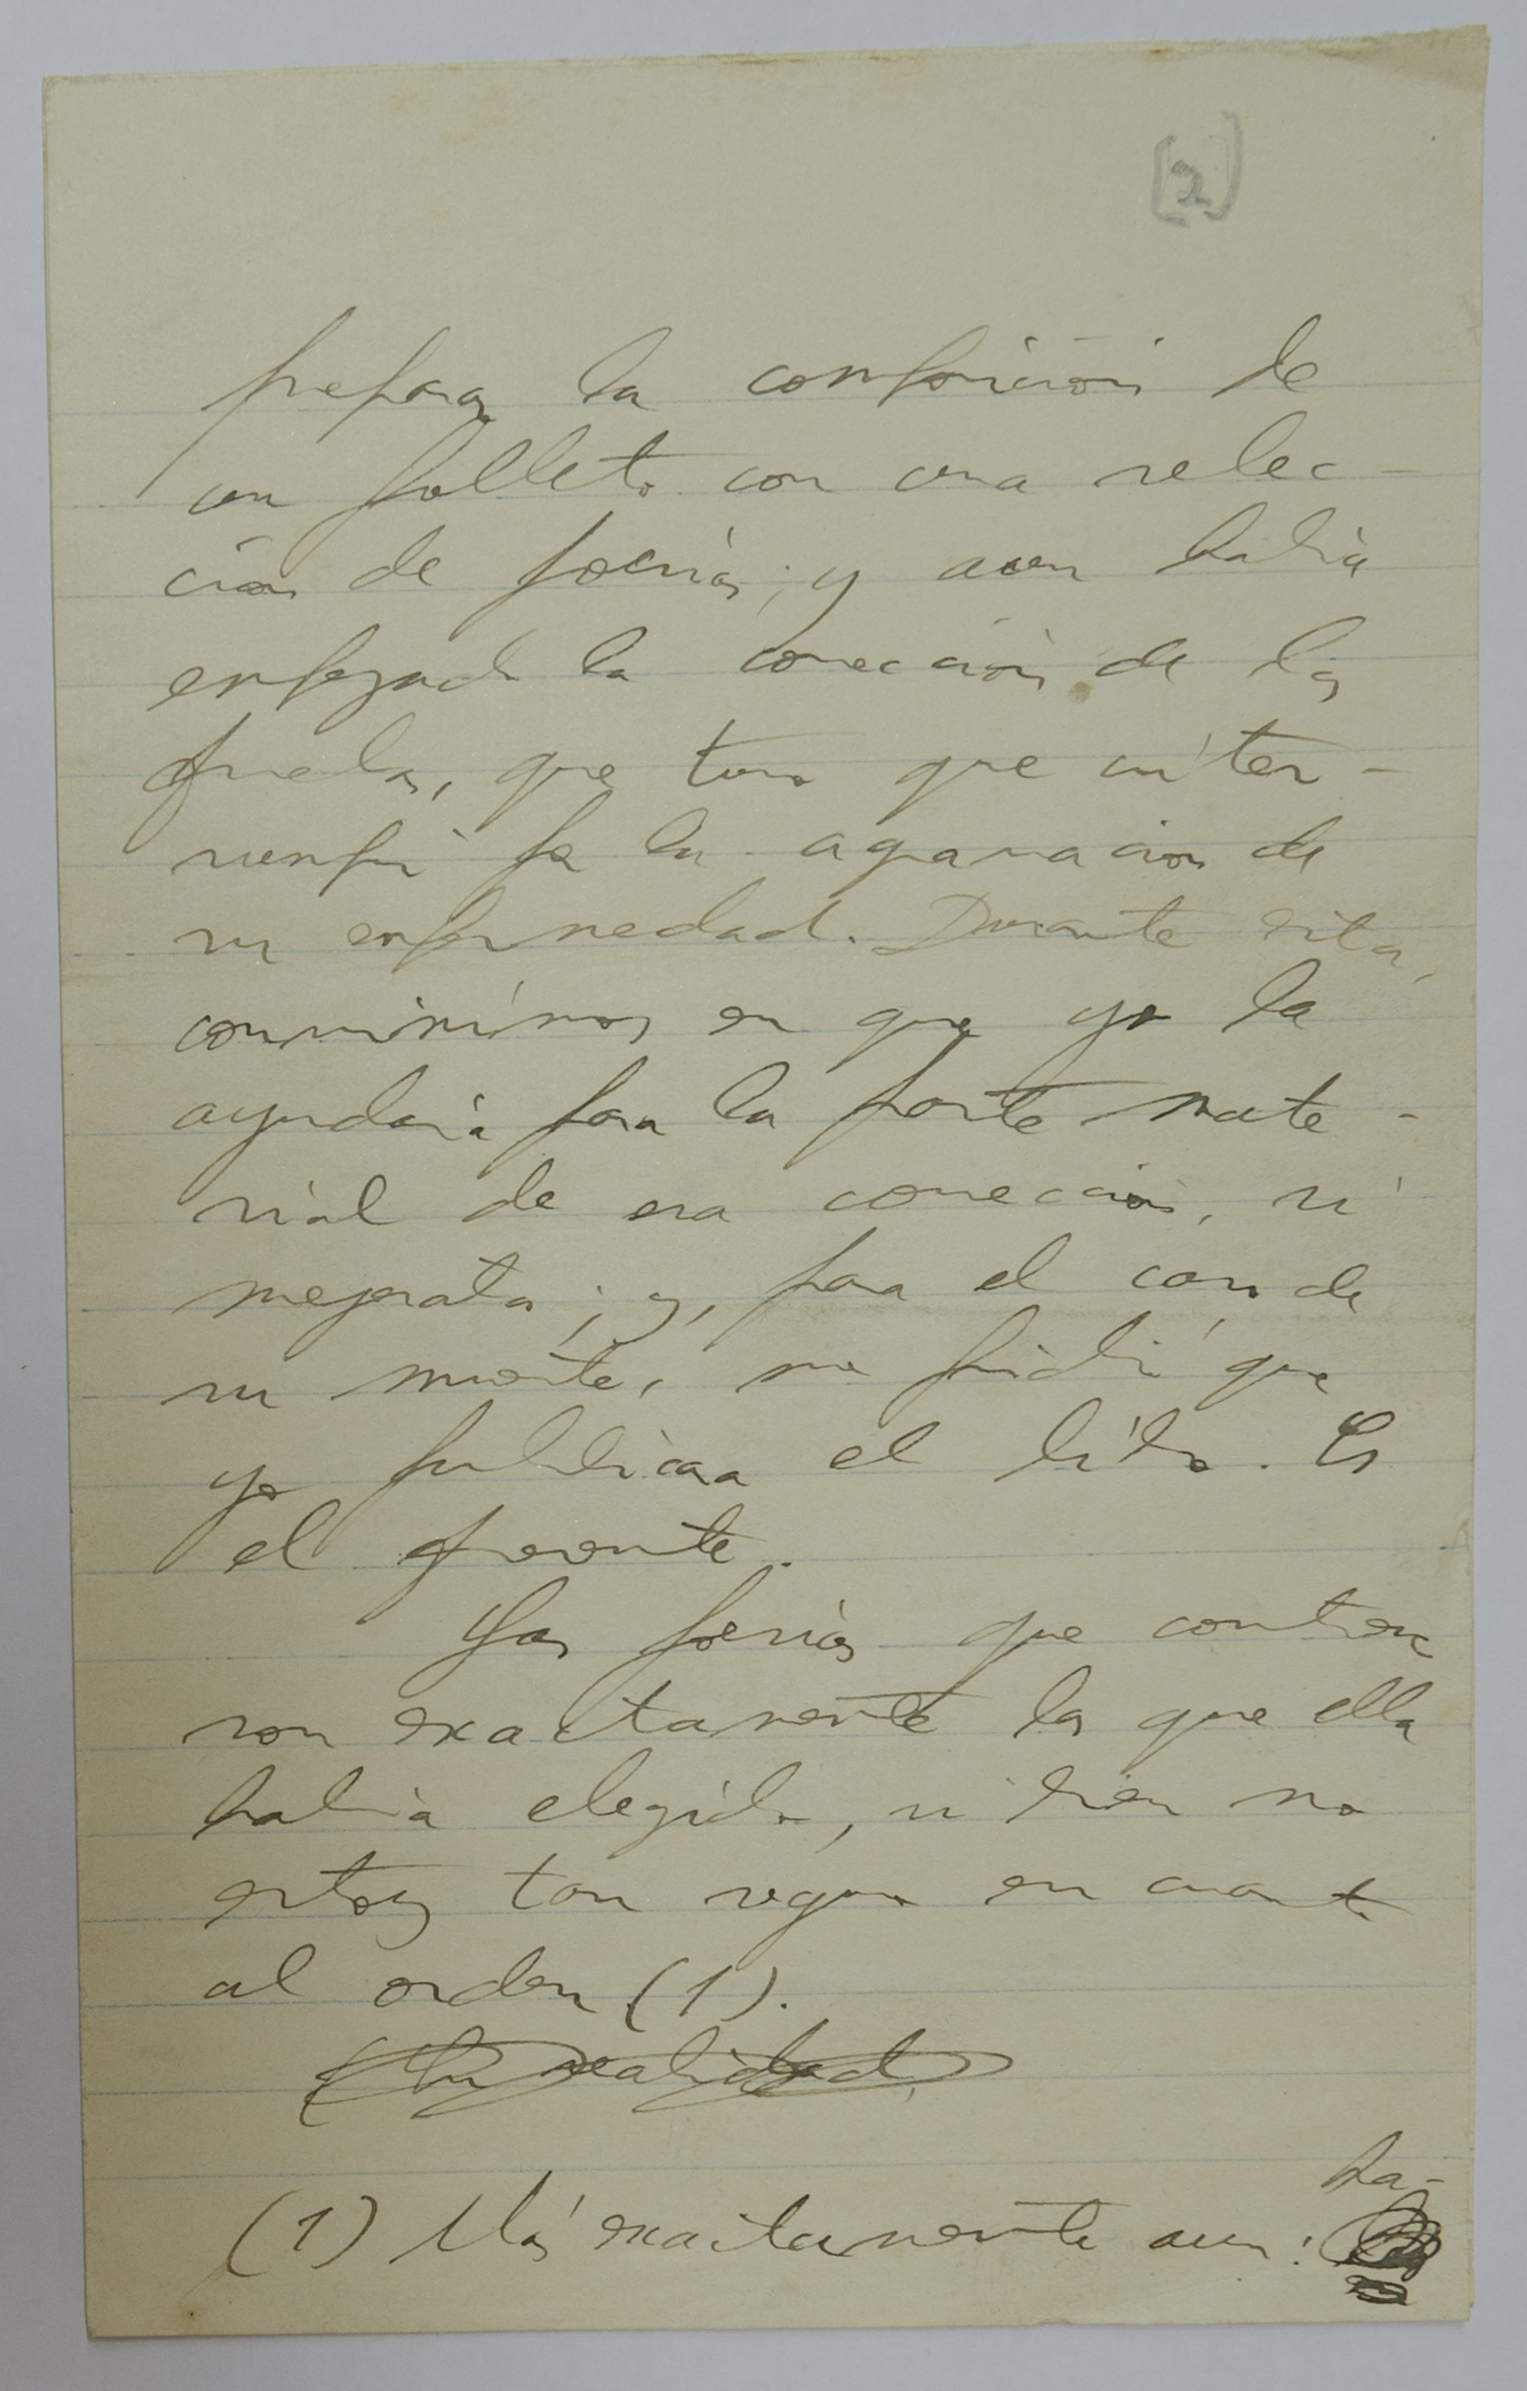 [2]
preparar la composición de
un folleto con una selec-
ción de poesías; y aun había
empezado la corrección de las
pruebas, que tuvo que inter-
rumpir por la agravación de
su enfermedad. Durante esta,
convinimos en que yo la
ayudaría para la parte mate-
rial de esa corrección, si
mejoraba; y, para el caso de
su muerte, me pidió que
yo publicara el libro. Es
el presente.
Las poesías que contiene
son exactamente las que ella
había elegido, si bien no
estoy tan seguro en cuanto
al orden (1).
En realidad,
ha-
(1) Más exactamente aun: